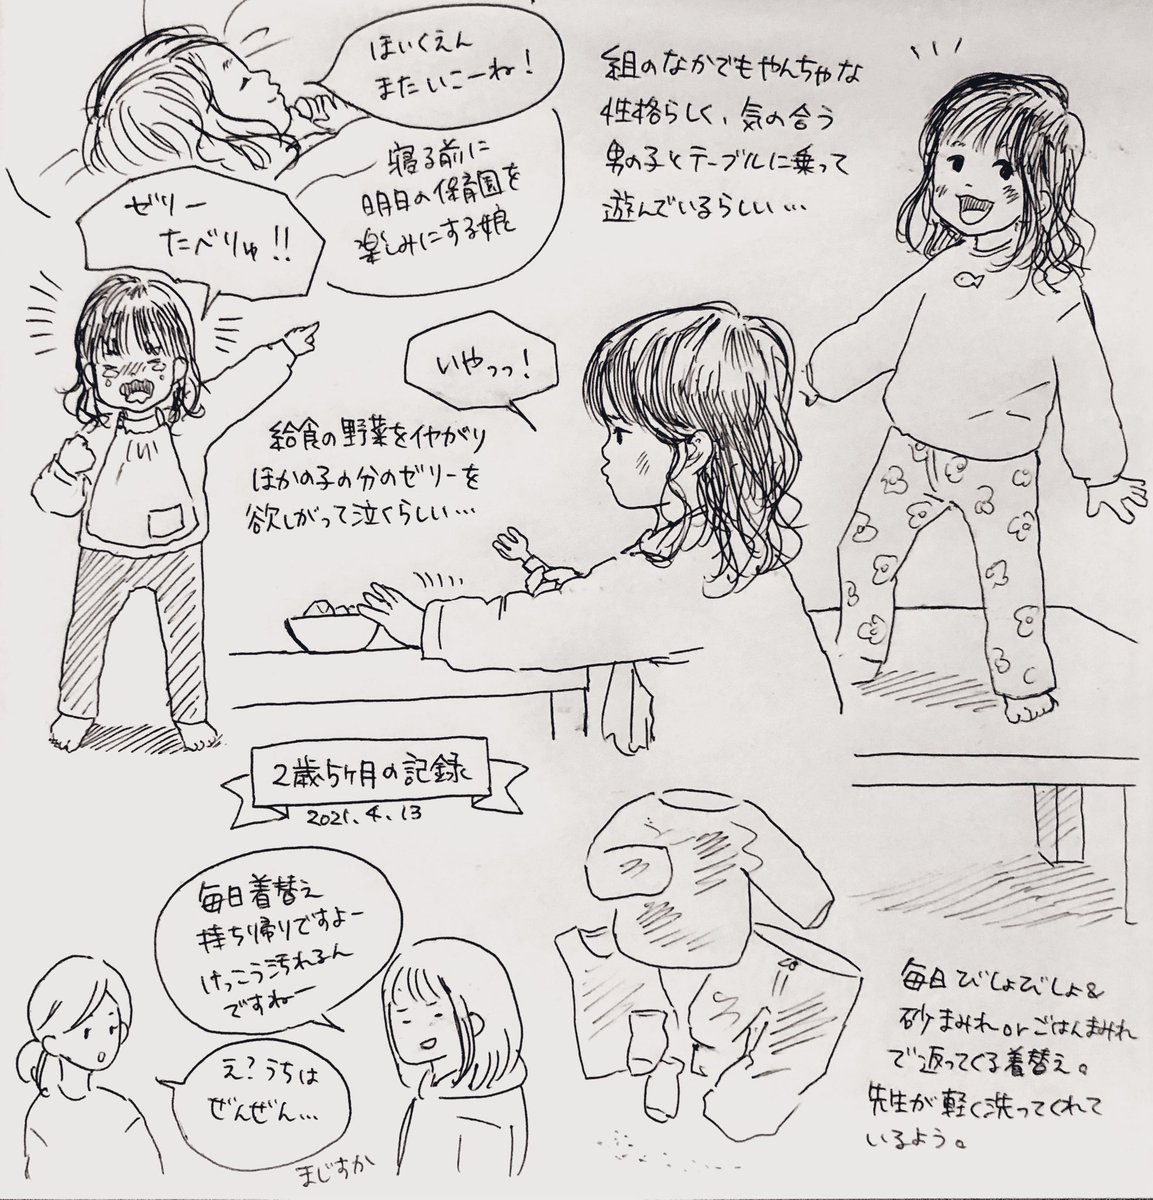 ほいくえん
またいこーね!
寝る前に
明日の保育園を
楽しみにする娘
組のなかでもやんちゃな
性格らしく、気の合う
男の子とテーブルに乗って
遊んでいるらしい…
ゼリー
たべりゅ!!
いやっっ!
給食の野菜をイヤがり
ほかの子の分のゼリーを
欲しがって泣くらしい…
2歳5ヶ月の記録
2021.4.13
毎日着替え
持ち帰りですよー
けっこう汚れるん
ですねー
え?うちは
ぜんぜん…
まじすか
毎日びしょびしょ&
砂まみれorごはんまみれ
で返ってくる着替え。
先生が軽く洗ってくれて
いるよう。